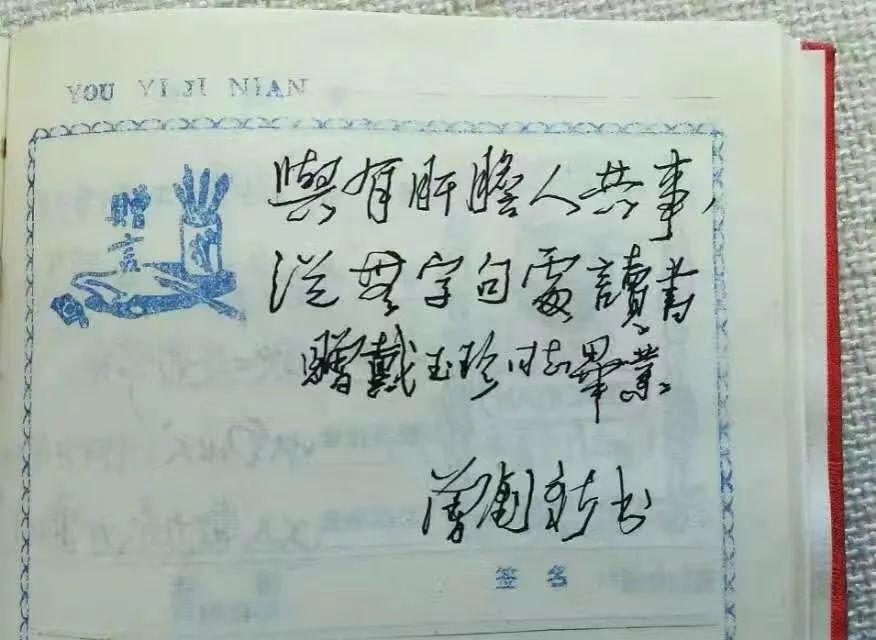 YOU YI JI NIAN
贈言
與有肝膽人共事，
從無字句處讀書
贈戴玉珍同志畢業
曾國新書
签名